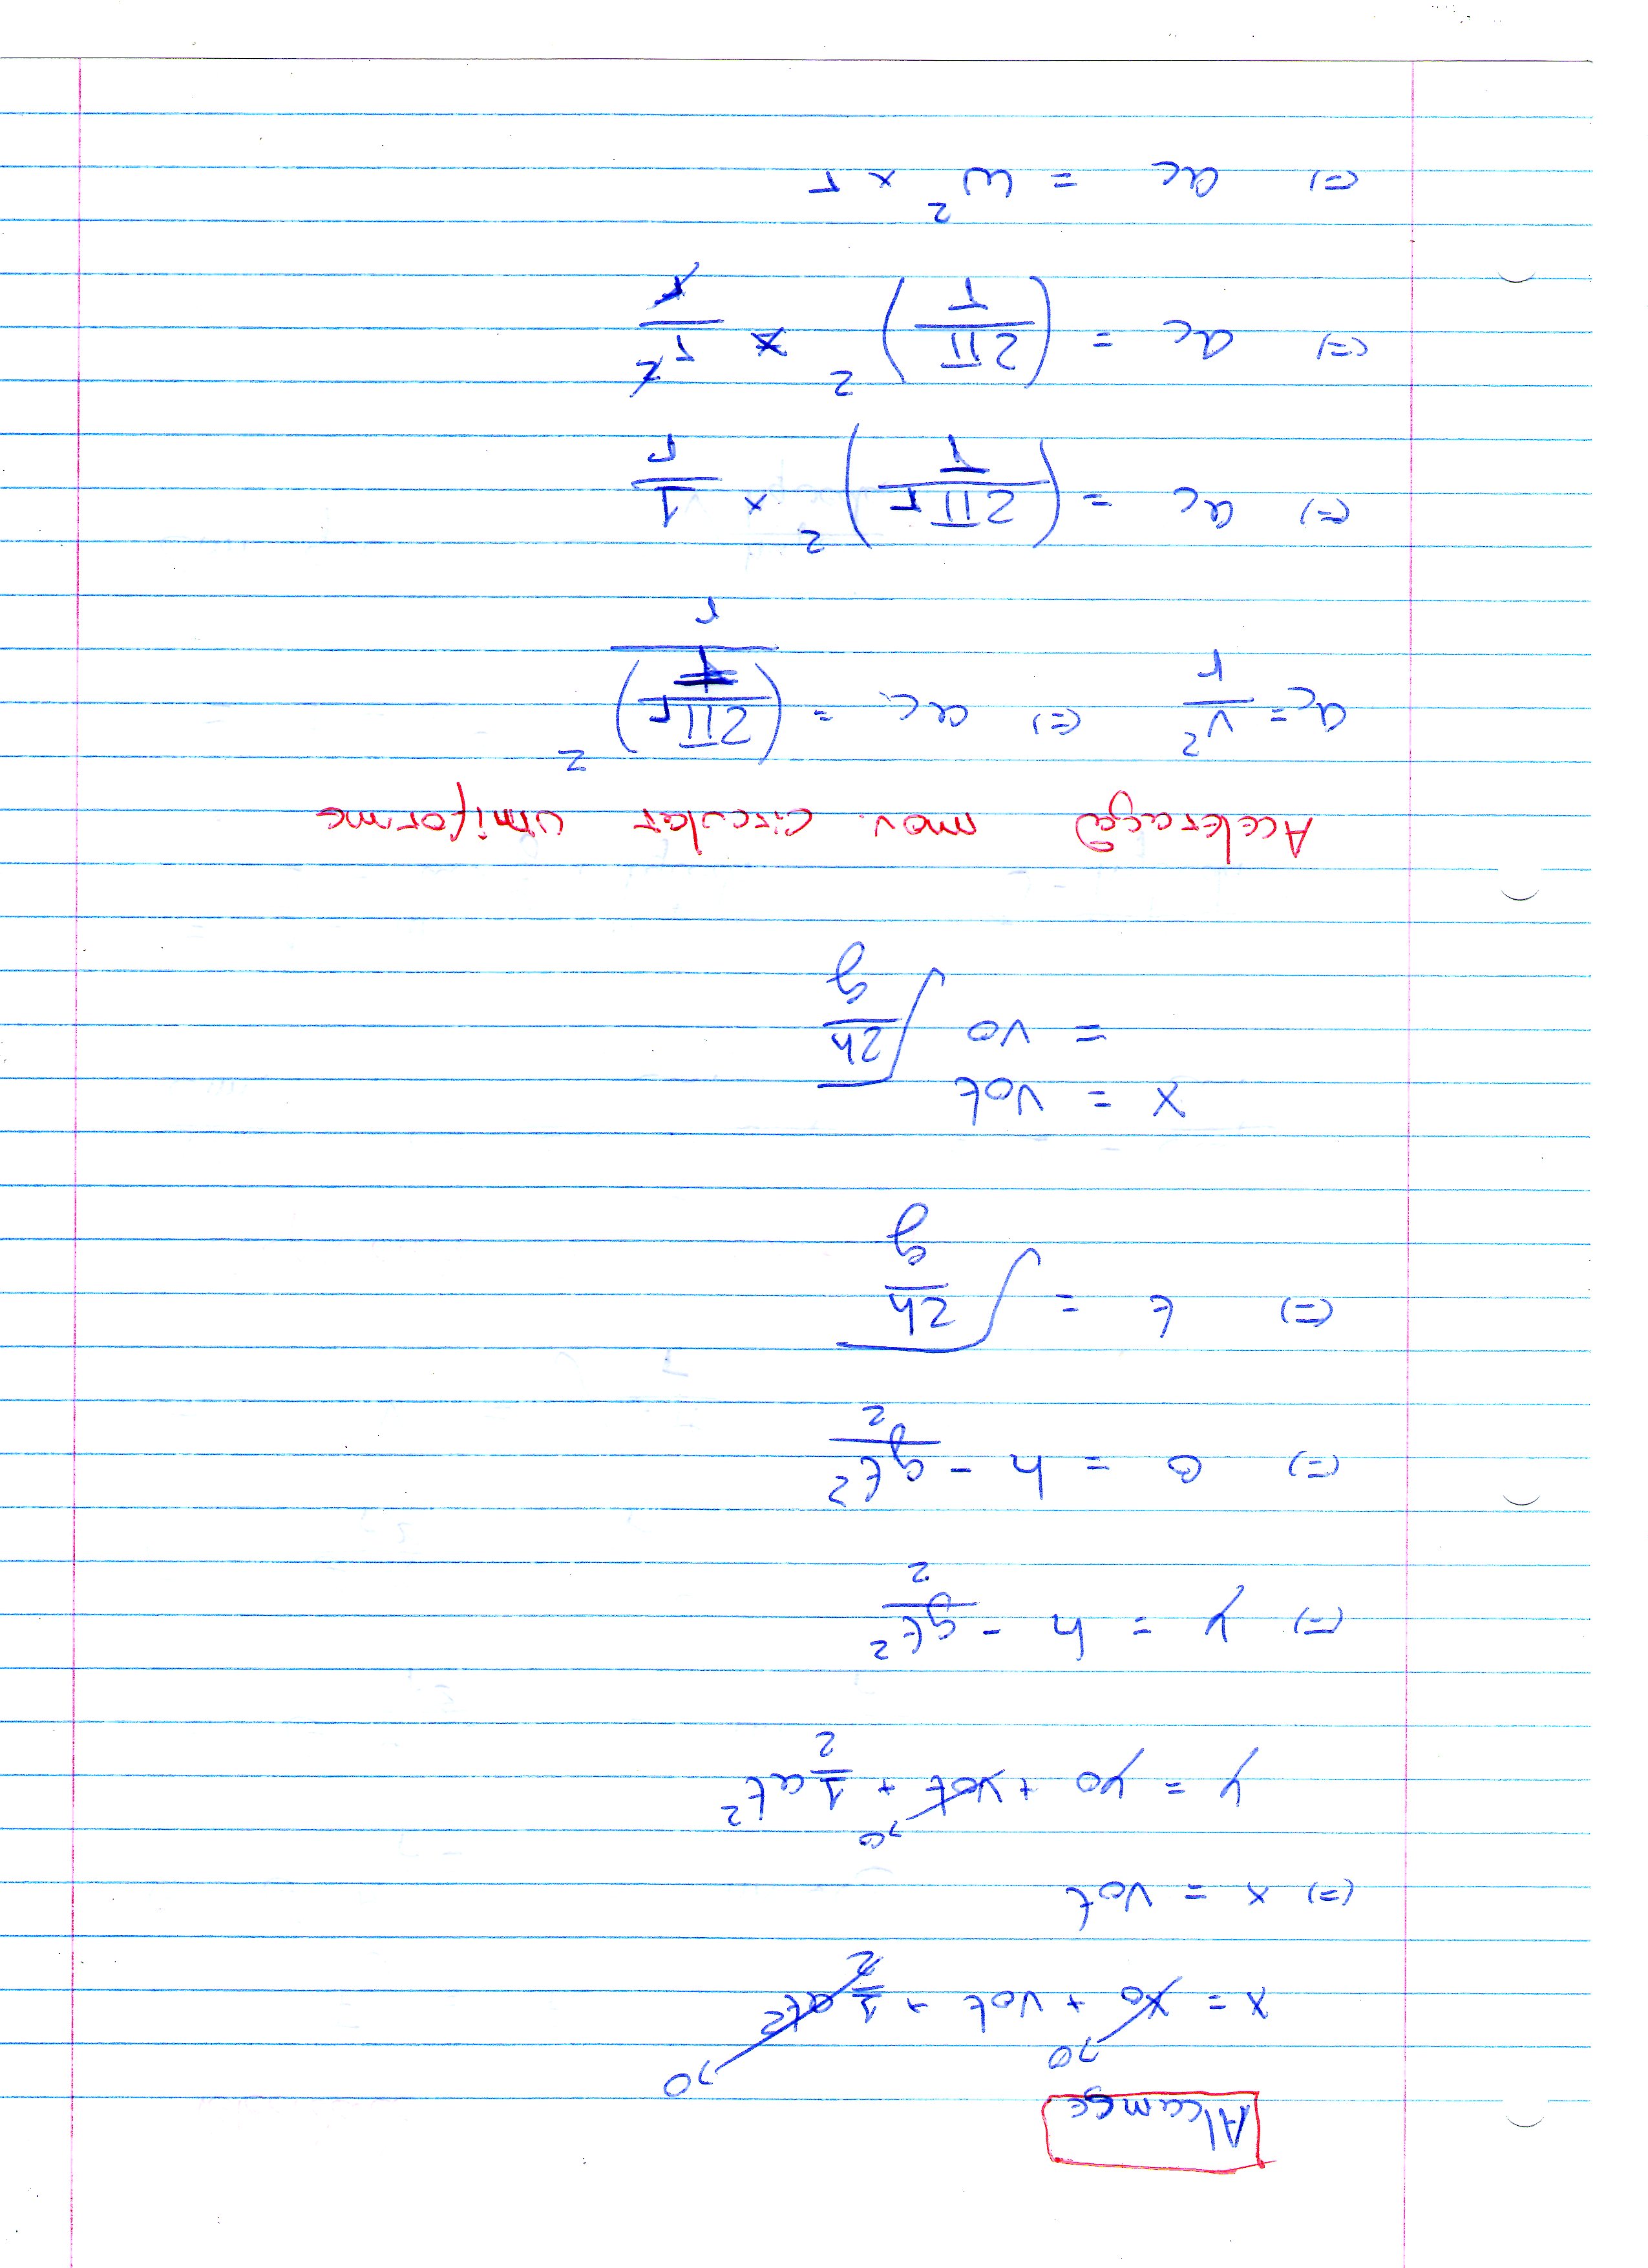 Alcance
x = x0 + v0t + 1/2 at² →0 →0
(=) x = v0t
y = y0 + v0t + 1/2 at² →0
(=) y = h - gt²/2
(=) 0 = h - gt²/2
(=) t = √(2h/g)
x = v0t
= v0 √(2h/g)
Aceleração mov. circular uniforme
ac = v²/r (=) ac = (2πr/T)²/r
(=) ac = (2πr/T)² × 1/r
(=) ac = (2π/T)² × r²/r
(=) ac = ω² × r